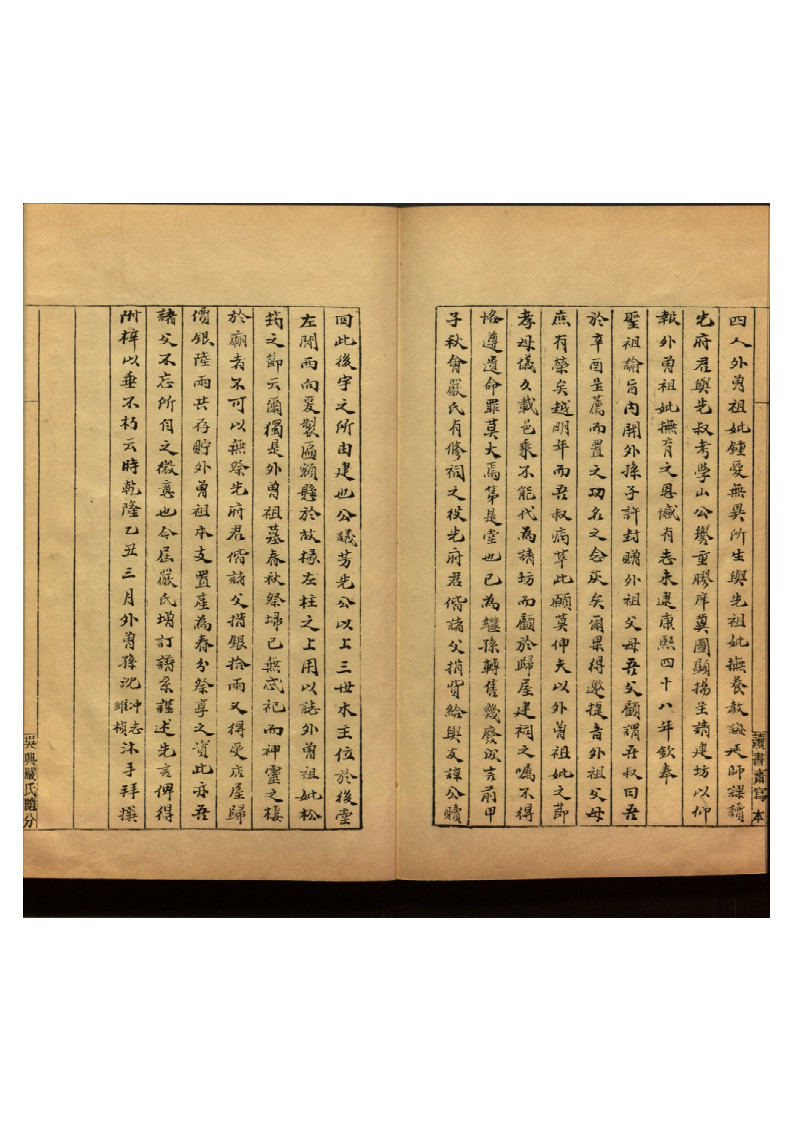 四人外曾祖妣鍾愛無異所生與先祖妣撫養教誨延師課讀
先府君與先叔考學山公譽重膠庠莫圖顯揚坐請建坊以仰
報外曾祖妣撫育之恩憾有志未逮康熙四十八年欽奉
聖祖諭旨內開外孫子許封贈外祖父母吾父顧謂吾叔曰吾
於辛酉呈薦而置之功名之念灰矣爾果得邀捷音外祖父母
庶有榮矣越明年而吾叔病革此願莫伸夫以外曾祖妣之節
孝母儀久載邑乘不能代為請坊而顧於歸屋建祠之囑不得
恪遵遺命罪莫大焉第是堂也已為繼孫轉售幾廢成言前甲
子秋會嚴氏有修祠之役先府君偕諸父捐貲給與友諄公贖
回此後宇之所由建也公議芳先公以上三世木主位於後堂
左開西向爰製匾額懸於故椽左柱之上用以誌外曾祖妣松
筠之節云爾獨是外曾祖墓春秋祭埽已無忝祀而神靈之棲
於廟者不可以無祭先府君偕諸父捐銀拾兩又得受店屋歸
價銀陸兩共存貯外曾祖本支置產為春分祭享之資此亦吾
諸父不忘所自之微意也今届嚴氏增訂譜系謹述先言俾得
附梓以垂不朽云時乾隆乙丑三月外曾孫沈沖志維楨沐手拜撰
讀書齋寫本
吳興嚴氏隨分